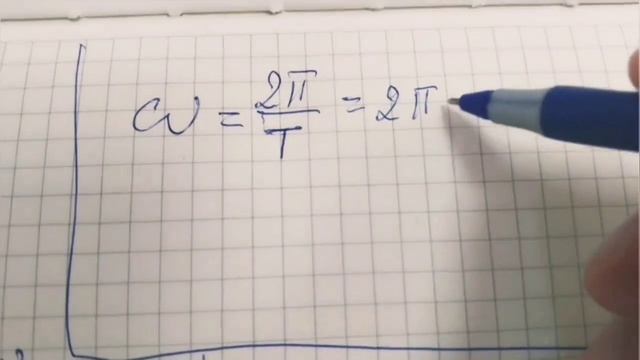 ω = 2π/T = 2π